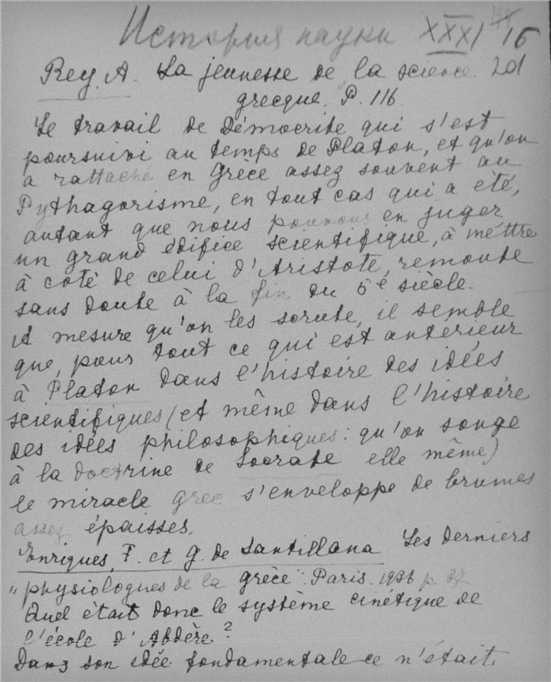 История науки XXXI 15
Rey. A. La jeunesse de la science 2d
grecque. P. 116.
Le travail de Démocrite qui s'est
poursuivi au temps de Platon, et qu'on
a rattaché en Grèce assez souvent au
Pythagorisme, en tout cas qui a été,
autant que nous pouvons en juger
un grand édifice scientifique, à mettre
à coté de celui d'Aristote, remonte
sans doute à la fin du 5e siècle.
A mesure qu'on les scrute, il semble
que, pour tout ce qui est antérieur
à Platon dans l'histoire des idées
scientifiques (et même dans l'histoire
des idées philosophiques: qu'on songe
à la doctrine de Socrate elle même)
le miracle grec s'enveloppe de brumes
assez épaisses.
Enriques, F. et G. de Santillana Les derniers
"physiologues de la grèce". Paris. 1936 p. 37.
Quel était donc le système cinétique de
l'école d'Abdère?
Dans son idée fondamentale ce n'était